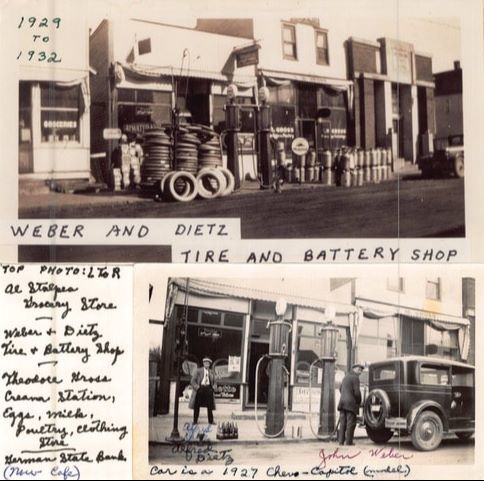 1929
TO
1932
WEBER AND DIETZ
GROCERIES
GROSS
WEBER AND DIETZ
TIRE AND BATTERY SHOP
TOP PHOTO: L TO R
Al Stalpes
Grocery Store
Weber & Dietz
Tire & Battery Shop
Theodore Gross
Cream Station,
Eggs, Milk,
Poultry, Clothing
Store
German State Bank
(Now Cafe)
Alfred
Dietz
John Weber
Car is a 1927 Chev - Capitol (model)